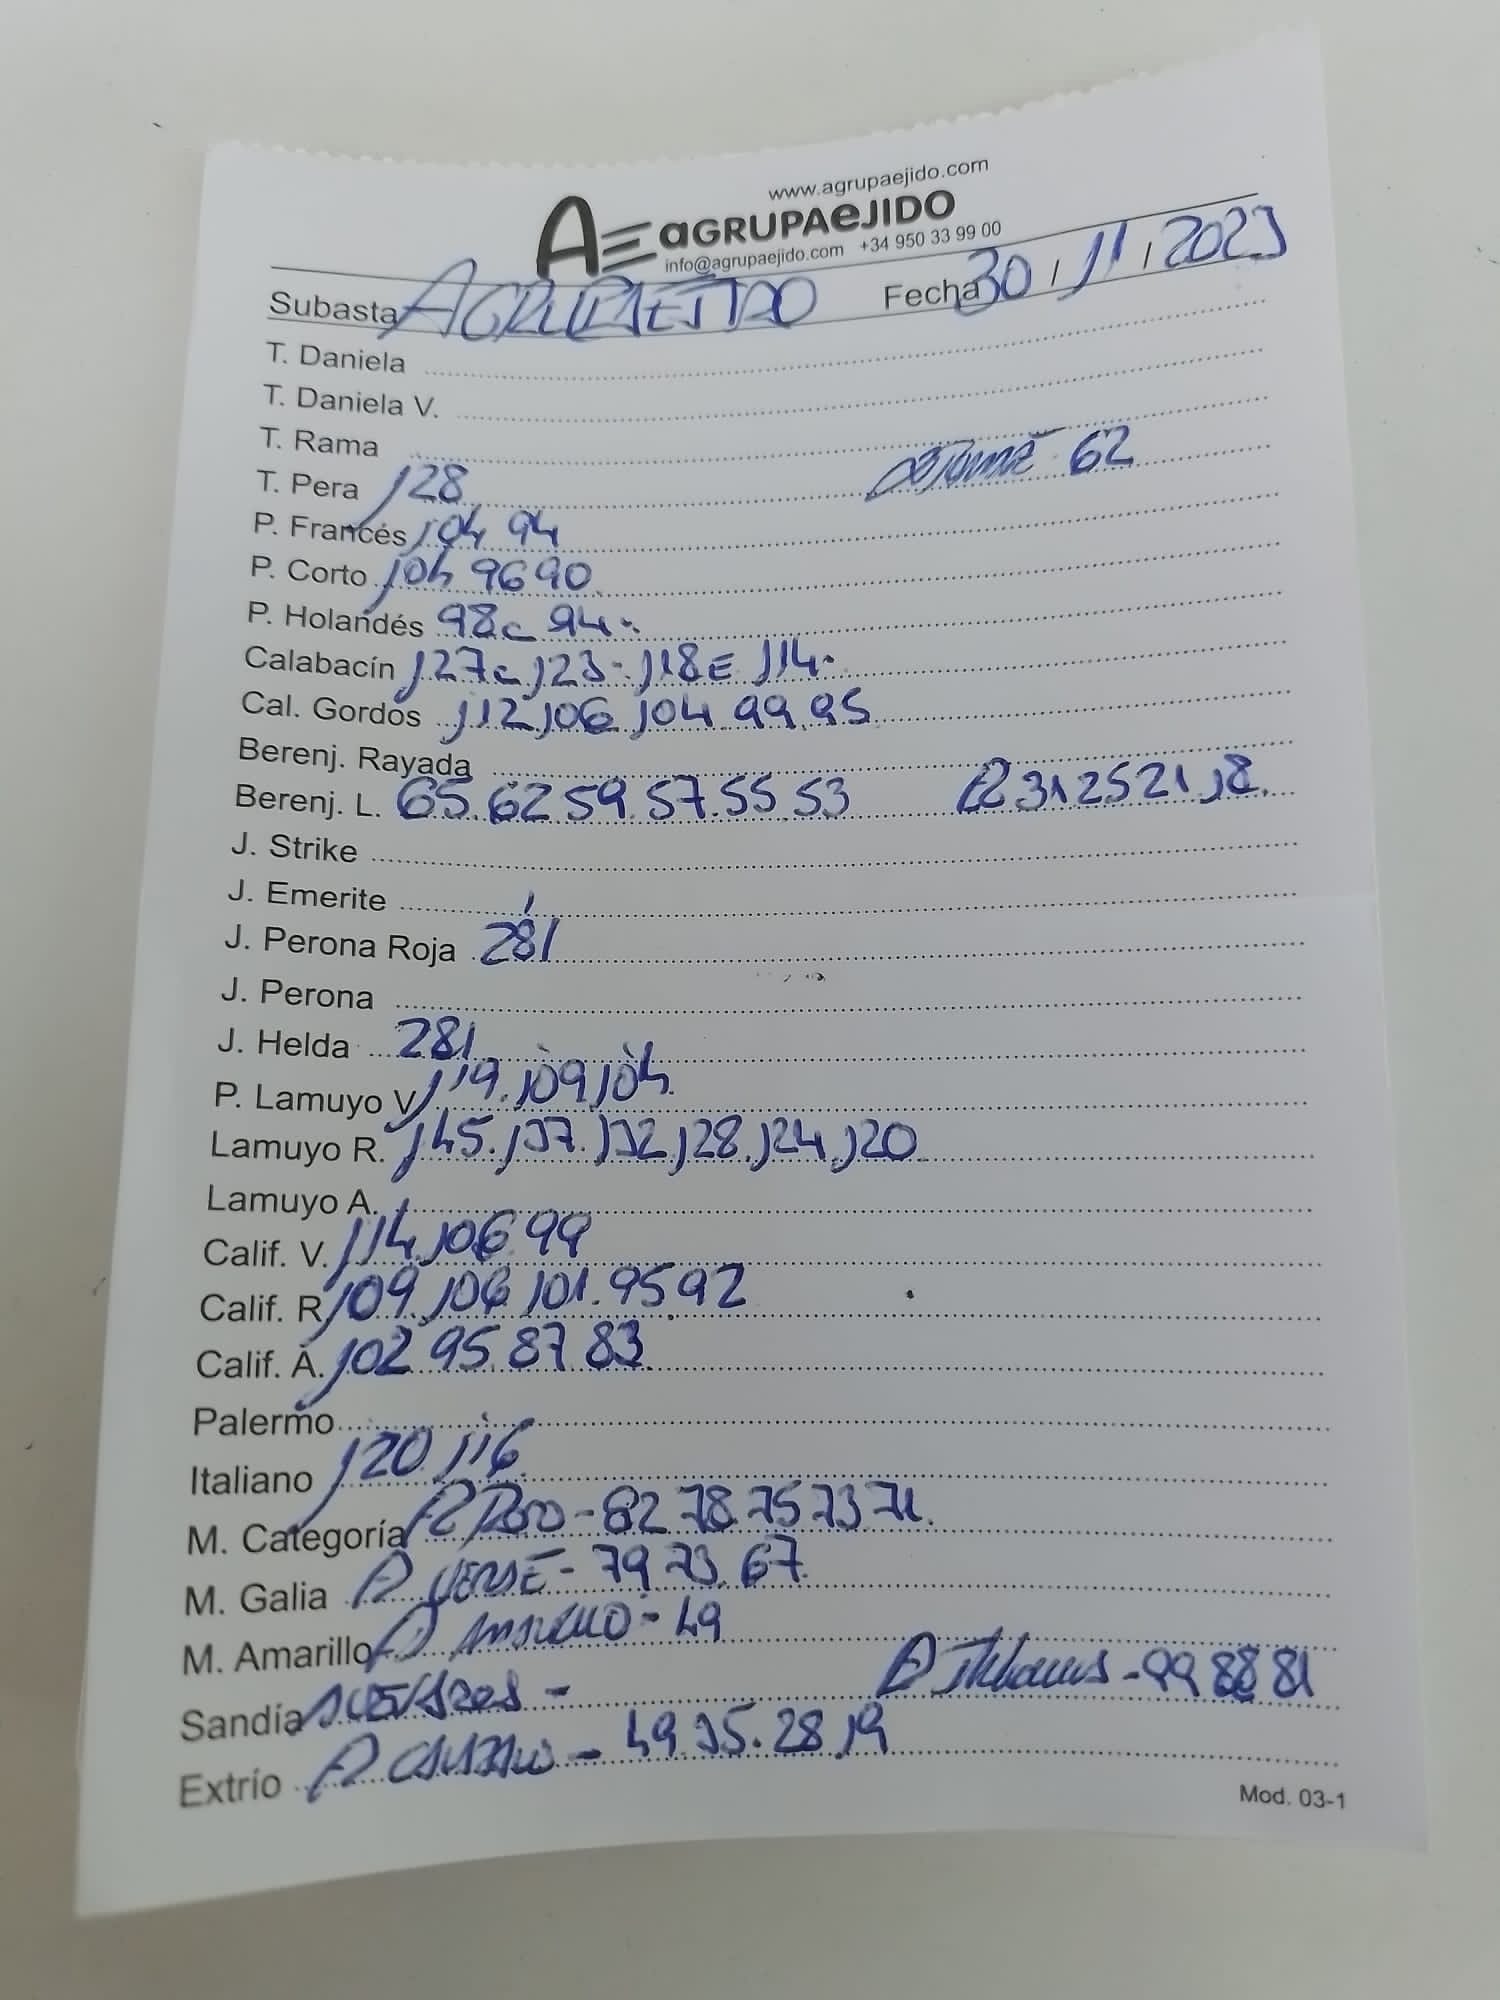 www.agrupaejido.com
AE aGRUPAeJIDO
info@agrupaejido.com +34 950 33 99 00
Subasta AGRUPAEJIDO Fecha 30 / 11 / 2023
T. Daniela
T. Daniela V.
T. Rama
T. Pera 128 62
P. Francés 104 94
P. Corto 104 96 90
P. Holandés 98 - 94 -
Calabacín 127 - 123 - 118 = 114 -
Cal. Gordos 112 106 104 99 95
Berenj. Rayada
Berenj. L. 65. 62 59. 57. 55. 53 R 31 25 21 18.
J. Strike
J. Emerite
J. Perona Roja 281
J. Perona
J. Helda 281
P. Lamuyo V. 119. 109 104.
Lamuyo R. 145. 137. 132 128. 124 120
Lamuyo A.
Calif. V. 114 106 99
Calif. R. 109. 106 101. 95 92
Calif. A. 102 95. 87 83
Palermo
Italiano 120 116
M. Categoría R ROJO - 82 78 75 73 71.
M. Galia R VERDE - 79 73. 67
M. Amarillo R AMARILLO - 49
Sandía R ITALIANOS - 99 88 81
Extrío R - 49 35. 28 19
Mod. 03-1